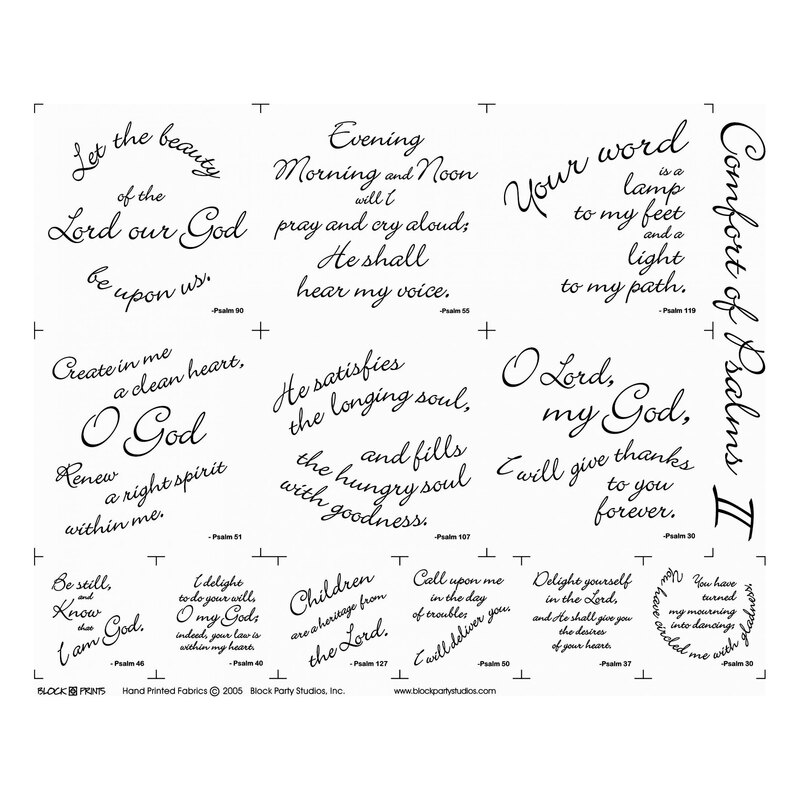 Let the beauty
of the
Lord our God
be upon us.
-Psalm 90
Evening
Morning and Noon
will I
pray and cry aloud;
He shall
hear my voice.
-Psalm 55
Your word
is a
lamp
to my feet
and a
light
to my path.
- Psalm 119
Comfort of Psalms II
Create in me
a clean heart,
O God
Renew
a right spirit
within me.
- Psalm 51
He satisfies
the longing soul,
and fills
the hungry soul
with goodness.
-Psalm 107
O Lord,
my God,
I will give thanks
to you
forever.
-Psalm 30
Be still,
and
Know
that
I am God.
- Psalm 46
I delight
to do your will,
O my God;
indeed, your law is
within my heart.
- Psalm 40
Children
are a heritage from
the Lord.
- Psalm 127
Call upon me
in the day
of trouble;
I will deliver you.
- Psalm 50
Delight yourself
in the Lord,
and He shall give you
the desires
of your heart.
- Psalm 37
You have
turned
my mourning
into dancing;
You have circled me with gladness.
- Psalm 30
BLOCK PRINTS Hand Printed Fabrics © 2005 Block Party Studios, Inc. www.blockpartystudios.com